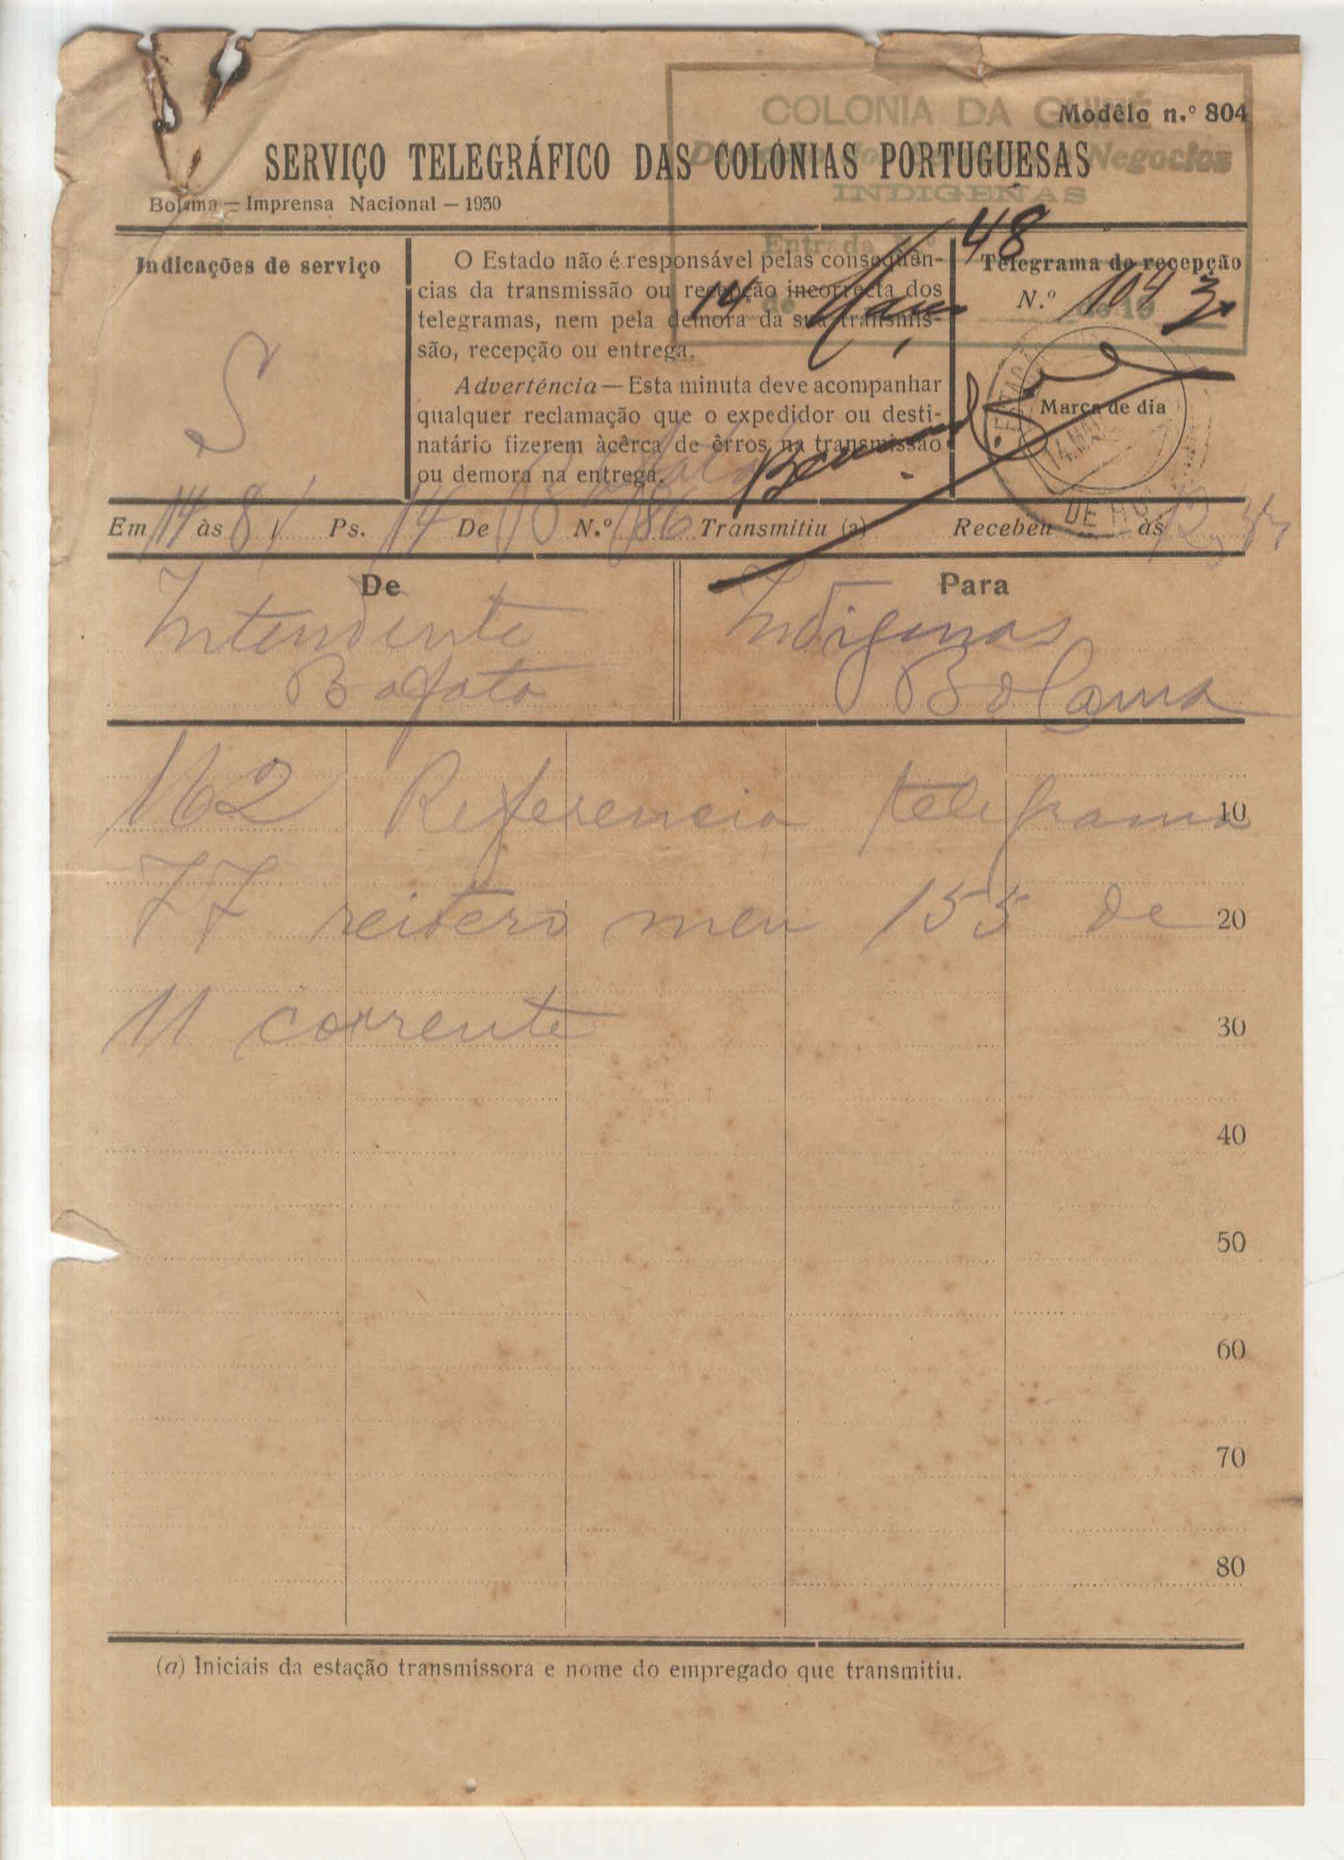 COLONIA DA GUINÉ
Modêlo n.º 804
SERVIÇO TELEGRÁFICO DAS COLÓNIAS PORTUGUESAS
Negocios
INDIGENAS
Bolama — Imprensa Nacional — 1930
Entrada N.º 48
Indicações de serviço
S
O Estado não é responsável pelas consequên-
cias da transmissão ou recepção incorrecta dos
telegramas, nem pela demora da sua transmis-
são, recepção ou entrega.
Advertência — Esta minuta deve acompanhar
qualquer reclamação que o expedidor ou desti-
natário fizerem àcêrca de êrros na transmissão
ou demora na entrega.
Telegrama de recepção
N.º 104
14 de de 193
Marca de dia
14.MAI
Em 14 às 8 Ps. 14 De N.º 186 Transmitiu (a) Recebeu às
De
Intendente
Bafata
Para
Indigenas
Bolama
162 Referencia telegrama 10
77 reitero meu 155 de 20
11 corrente 30
40
50
60
70
80
(a) Iniciais da estação transmissora e nome do empregado que transmitiu.